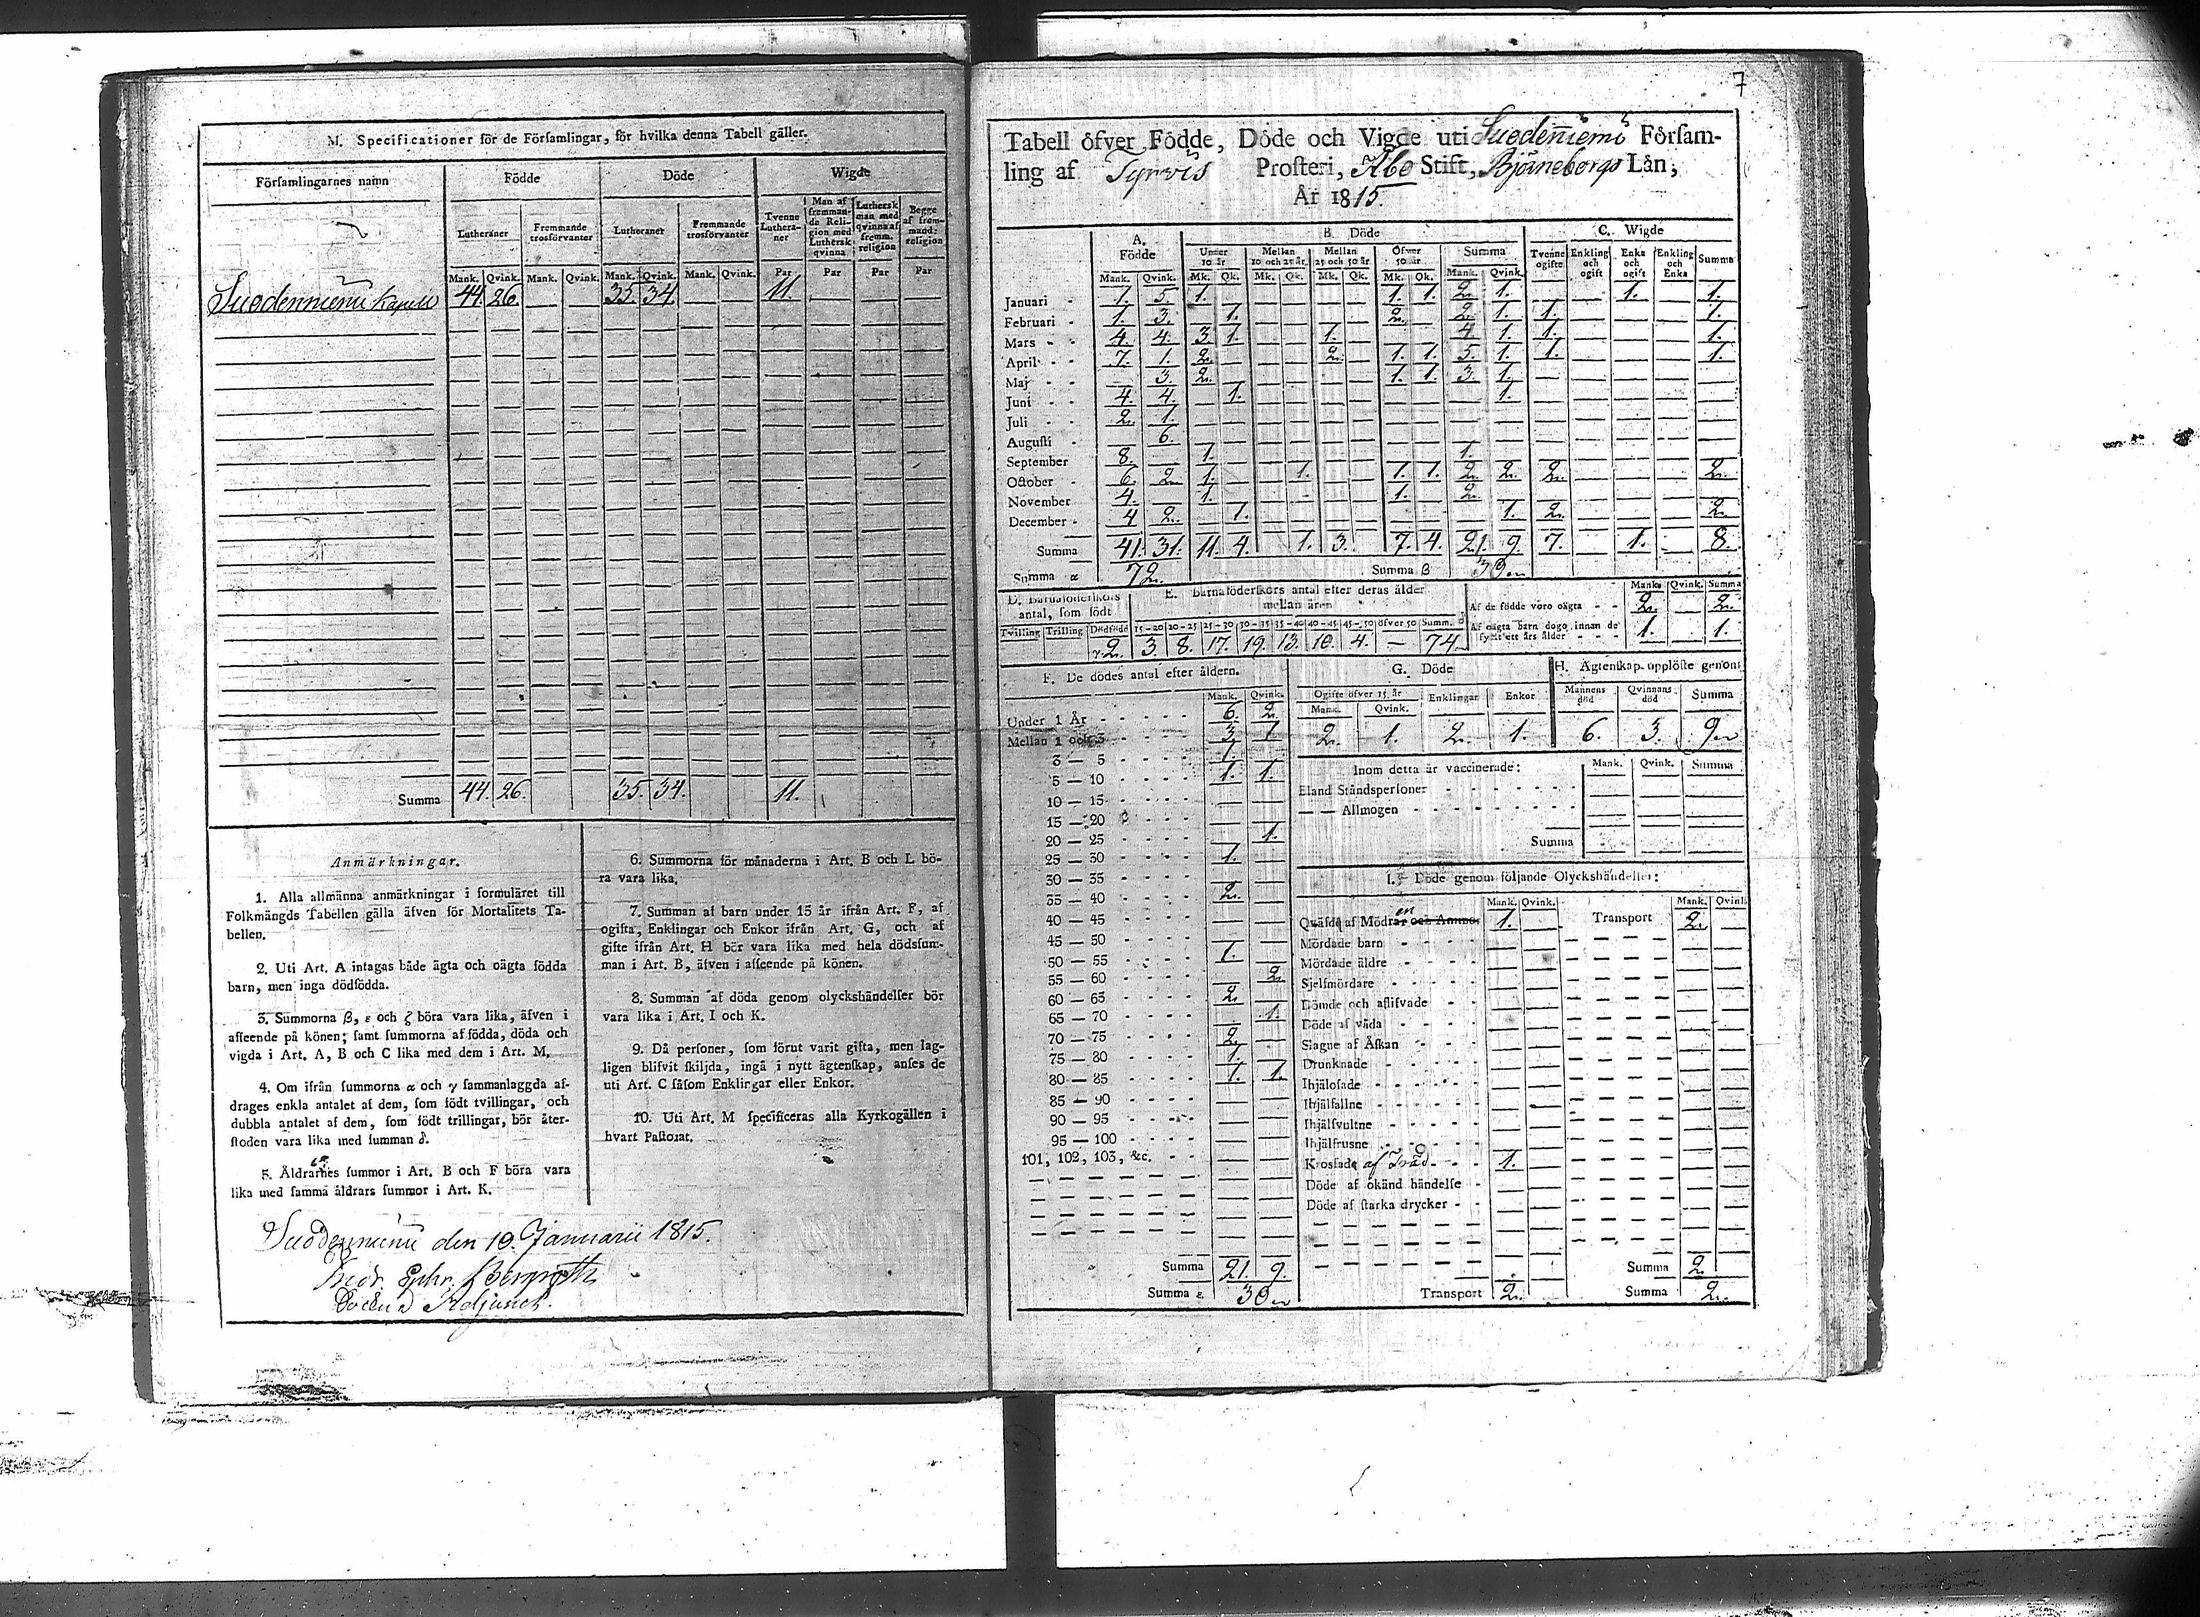 M. Specificationer för de Förſamlingar, för hvilka denna Tabell gäller.
Förſamlingarnes namn Födde Döde Wigde
Lutheraner Fremmande trosförvanter Lutheraner Fremmande trosförvanter Tvenne Lutheraner Man af fremmande Religion med Lutherſk qvinna Lutherſk man med qvinna af fremm. religion Begge af fremmand: religion
Mank. Qvink. Mank. Qvink. Mank. Qvink. Mank. Qvink. Par Par Par Par
Suodenniemi Kapell 44. 26. 35. 34. 11.
Summa 44. 26. 35. 34. 11.
Anmärkningar.
1. Alla allmänna anmärkningar i formuläret till
Folkmängds Tabellen gälla äfven för Mortalitets Ta-
bellen.
2. Uti Art. A intagas både ägta och oägta födda
barn, men inga dödfödda.
3. Summorna β, ε och ζ böra vara lika, äfven i
affeende på könen; ſamt ſummorna af födda, döda och
vigda i Art. A, B och C lika med dem i Art. M.
4. Om ifrån ſummorna α och γ ſammanlaggda af-
drages enkla antalet af dem, ſom födt tvillingar, och
dubbla antalet af dem, ſom födt trillingar, bör åter-
ſtoden vara lika med ſumman δ.
5. Åldrarnes ſummor i Art. B och F böra vara
lika med ſamma åldrars ſummor i Art. K.
6. Summorna för månaderna i Art. B och L bö-
ra vara lika.
7. Summan af barn under 15 år ifrån Art. F, af
ogifta, Enklingar och Enkor ifrån Art. G, och af
gifte ifrån Art. H bör vara lika med hela dödsſum-
man i Art. B, äfven i affeende på könen.
8. Summan af döda genom olyckshändelſer bör
vara lika i Art. I och K.
9. Då perſoner, ſom förut varit gifta, men lag-
ligen blifvit ſkiljda, ingå i nytt ägtenſkap, anſes de
uti Art. C ſåſom Enklingar eller Enkor.
10. Uti Art. M ſpecificeras alla Kyrkogällen i
hvart Paſtorat.
Suodenniemi den 10. Januarii 1815.
Andr. Ephr. Bergroth
Adjunct.
7
Tabell öfver Födde, Döde och Vigde uti Suodenniemi Förſam-
ling af Tyrvis Proſteri, Åbo Stift, Björneborgs Län,
År 1815.
A. Födde B. Döde C. Wigde
Under 10 år Mellan 10 och 25 år Mellan 25 och 50 år Öfver 50 år Summa Tvenne ogifte Enkling och ogift Enka och ogift Enkling och Enka Summa
Mank. Qvink. Mk. Qk. Mk. Qk. Mk. Qk. Mk. Qk. Mank. Qvink.
Januari 1. 5. 1. 1. 1. 2. 1. 1. 1.
Februari 1. 3. 1. 2. 2. 1. 1. 1.
Mars 4. 4. 3. 1. 1. 4. 1. 1. 1.
April 7. 1. 2. 2. 1. 1. 5. 1. 1. 1.
Maj 3. 2. 1. 1. 3. 1.
Juni 4. 4. 1. 1.
Juli 2. 1.
Auguſti 6.
September 8. 1. 1.
October 6. 2. 1. 1. 1. 1. 2. 2. 2. 2.
November 4. 1. 1. 2.
December 4 2. 1. 1. 2. 2.
Summa 41. 31. 11. 4. 1. 3. 7. 4. 21. 9. 7. 1. 8.
Summa α 72. Summa β 30
D. Barnaföderſkors antal, ſom födt
Tvilling Trilling Dödfödd
γ 2.
E. Barnaföderſkors antal efter deras ålder mellan åren
15—20 20—25 25—30 30—35 35—40 40—45 45—50 öfver 50 Summ. δ
3. 8. 17. 19. 13. 10. 4. — 74
Mank. Qvink. Summa
Af de födde voro oägta 2. 2.
Af oägta barn dogo innan de fyllt ett års ålder 1. 1.
F. De dödes antal efter åldern.
Mank. Qvink.
Under 1 År 6. 2.
Mellan 1 och 3 3. 1
3 — 5 1.
5 — 10 1. 1.
10 — 15
15 — 20
20 — 25 1.
25 — 30 1.
30 — 35
35 — 40 2.
40 — 45
45 — 50
50 — 55 1.
55 — 60 2.
60 — 65 2.
65 — 70 1.
70 — 75 2.
75 — 80 1.
80 — 85 1. 1.
85 — 90
90 — 95
95 — 100
101, 102, 103, &c.
Summa 21. 9.
Summa ε 30
G. Döde
Ogifte öfver 15 år Enklingar Enkor
Mank. Qvink.
2. 1. 2. 1.
H. Ägtenſkap upplöſte genom
Mannens död Qvinnans död Summa
6. 3. 9
Inom detta år vaccinerade: Mank. Qvink. Summa
Bland Ståndsperſoner
— — Allmogen
Summa
I. Döde genom följande Olyckshändelſer:
Mank. Qvink. Mank. Qvink.
Qväfde af Mödrar en och Ammor 1. Transport 2.
Mördade barn
Mördade äldre
Sjelfmördare
Dömde och aflifvade
Döde af våda
Slagne af Åſkan
Drunknade
Ihjäloſade
Ihjälfallne
Ihjälſvultne
Ihjälfrusne
Kroſſade af Träd 1.
Döde af okänd händelſe
Döde af ſtarka drycker
Summa 2.
Transport 2. Summa 2.